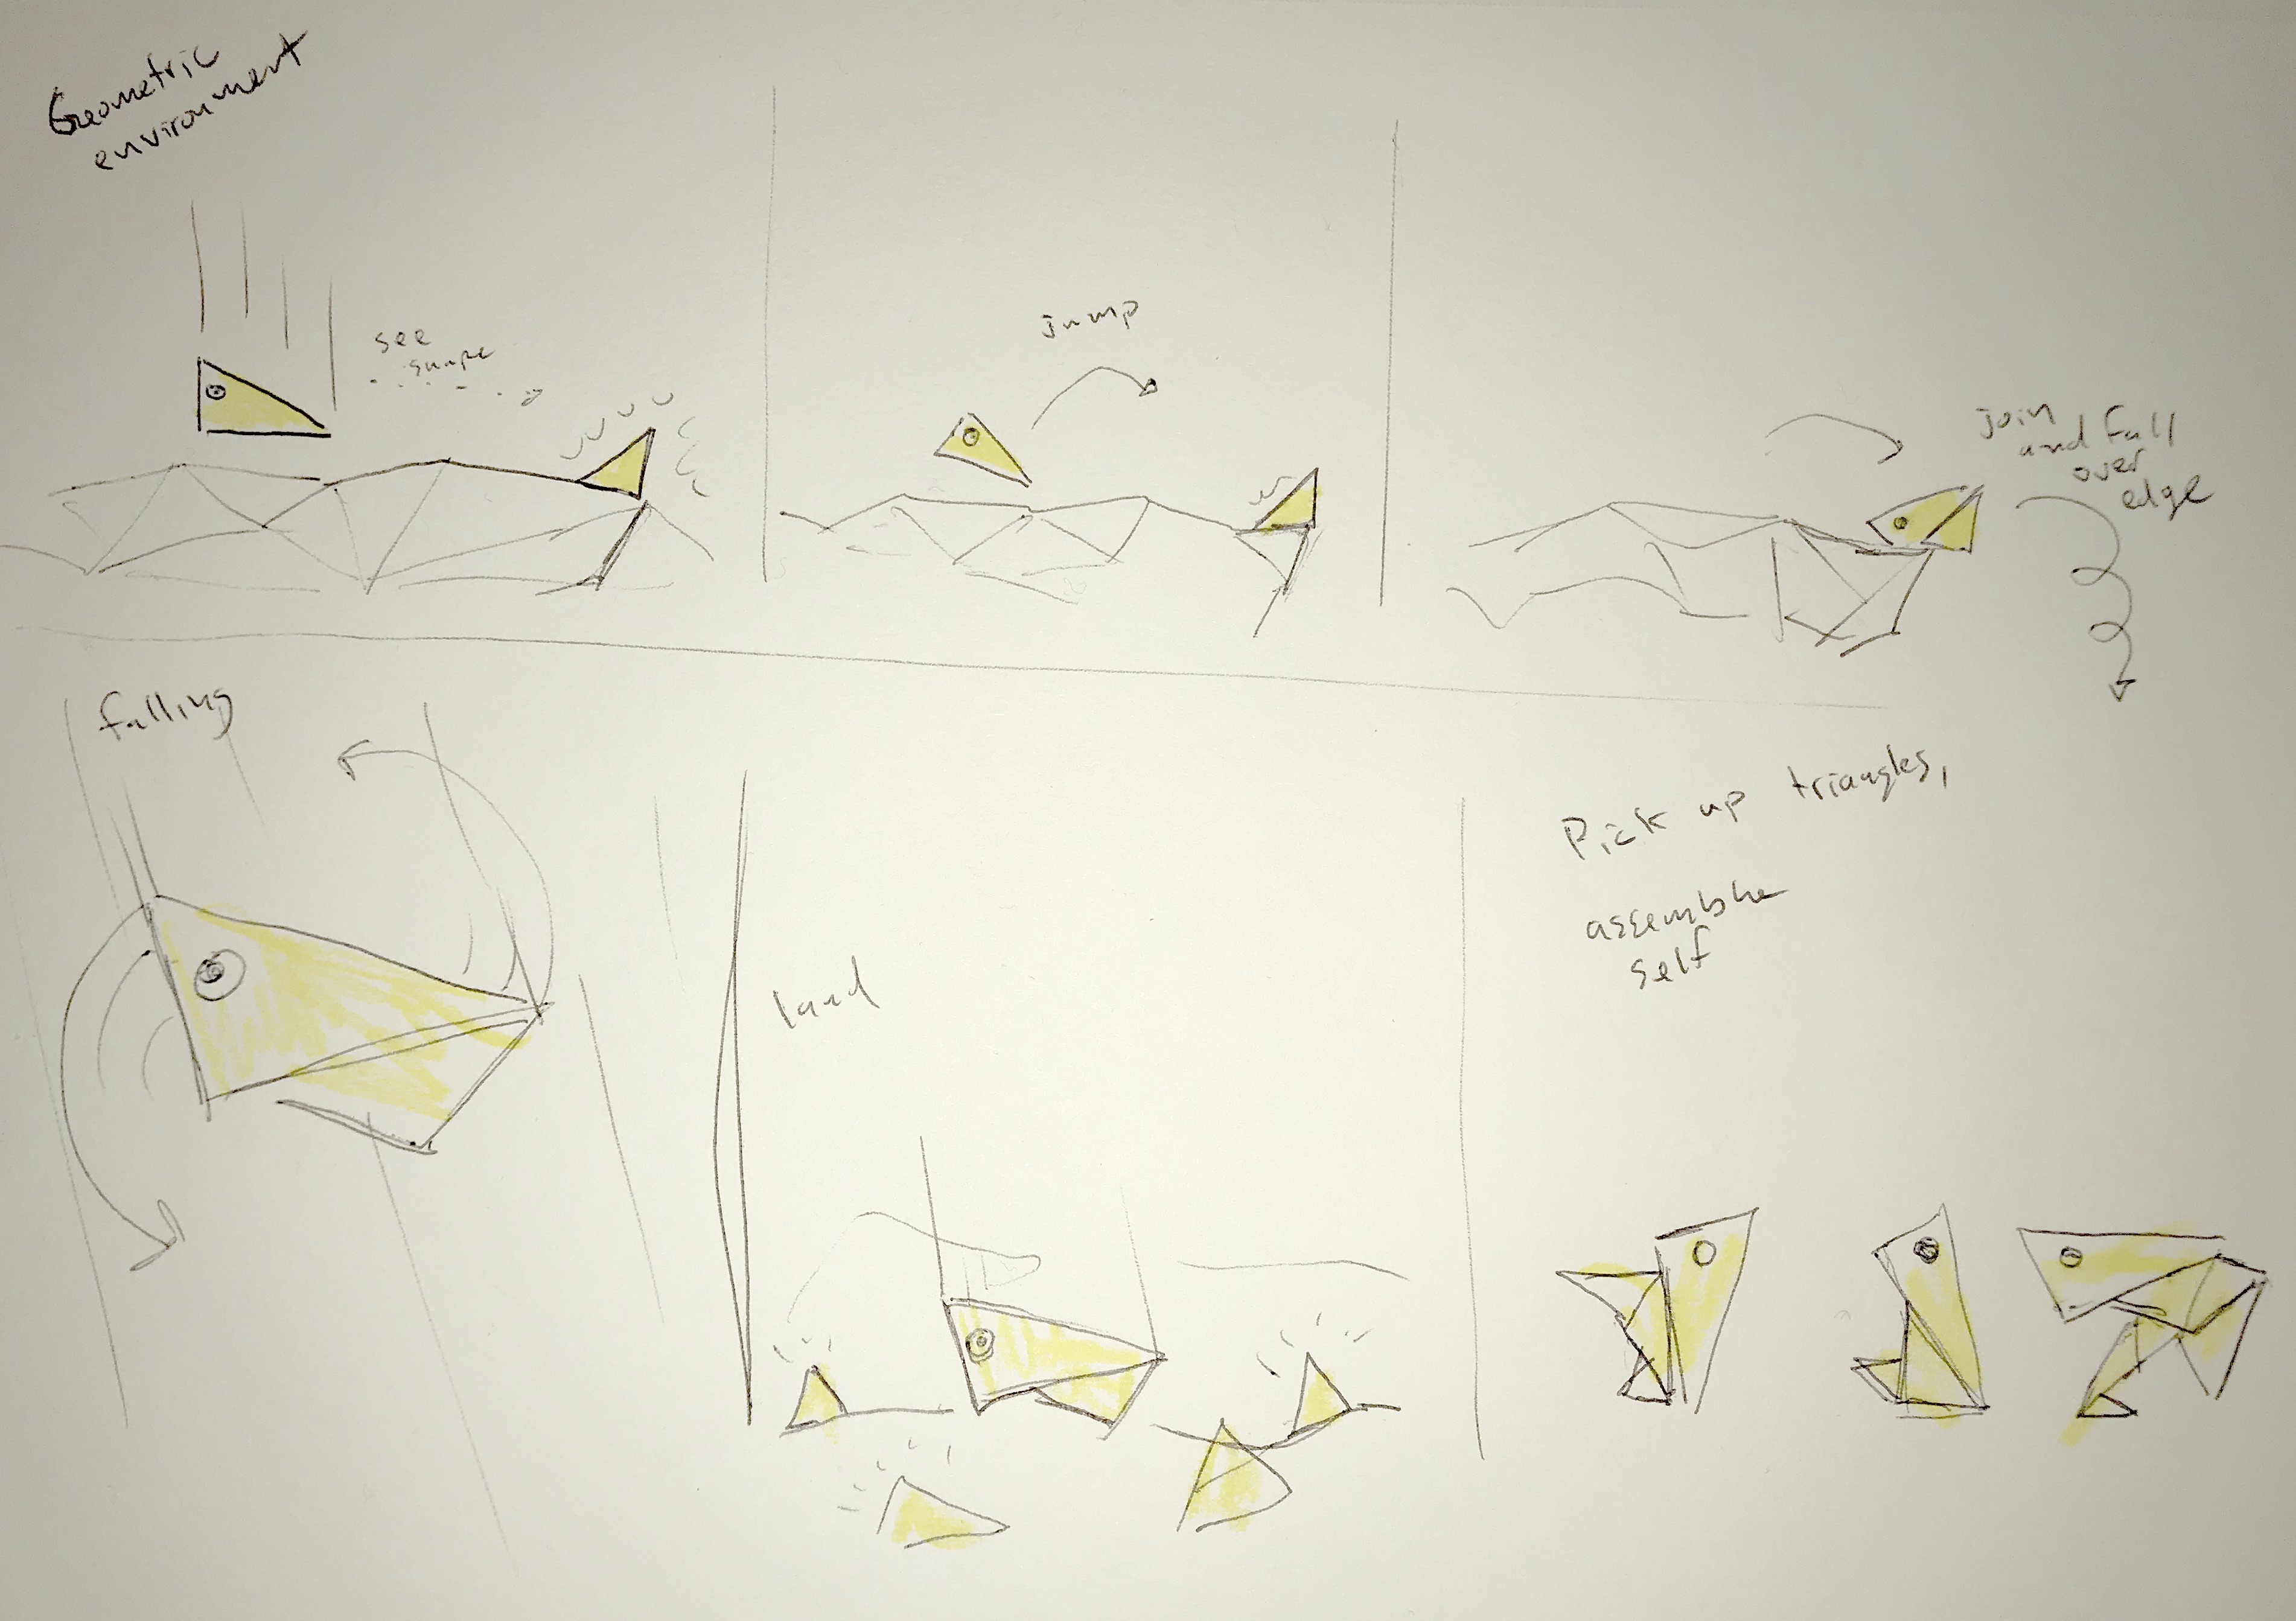 Geometric
environment
see
jump
join
and fall
over
edge
falling
land
Pick up triangles,
self